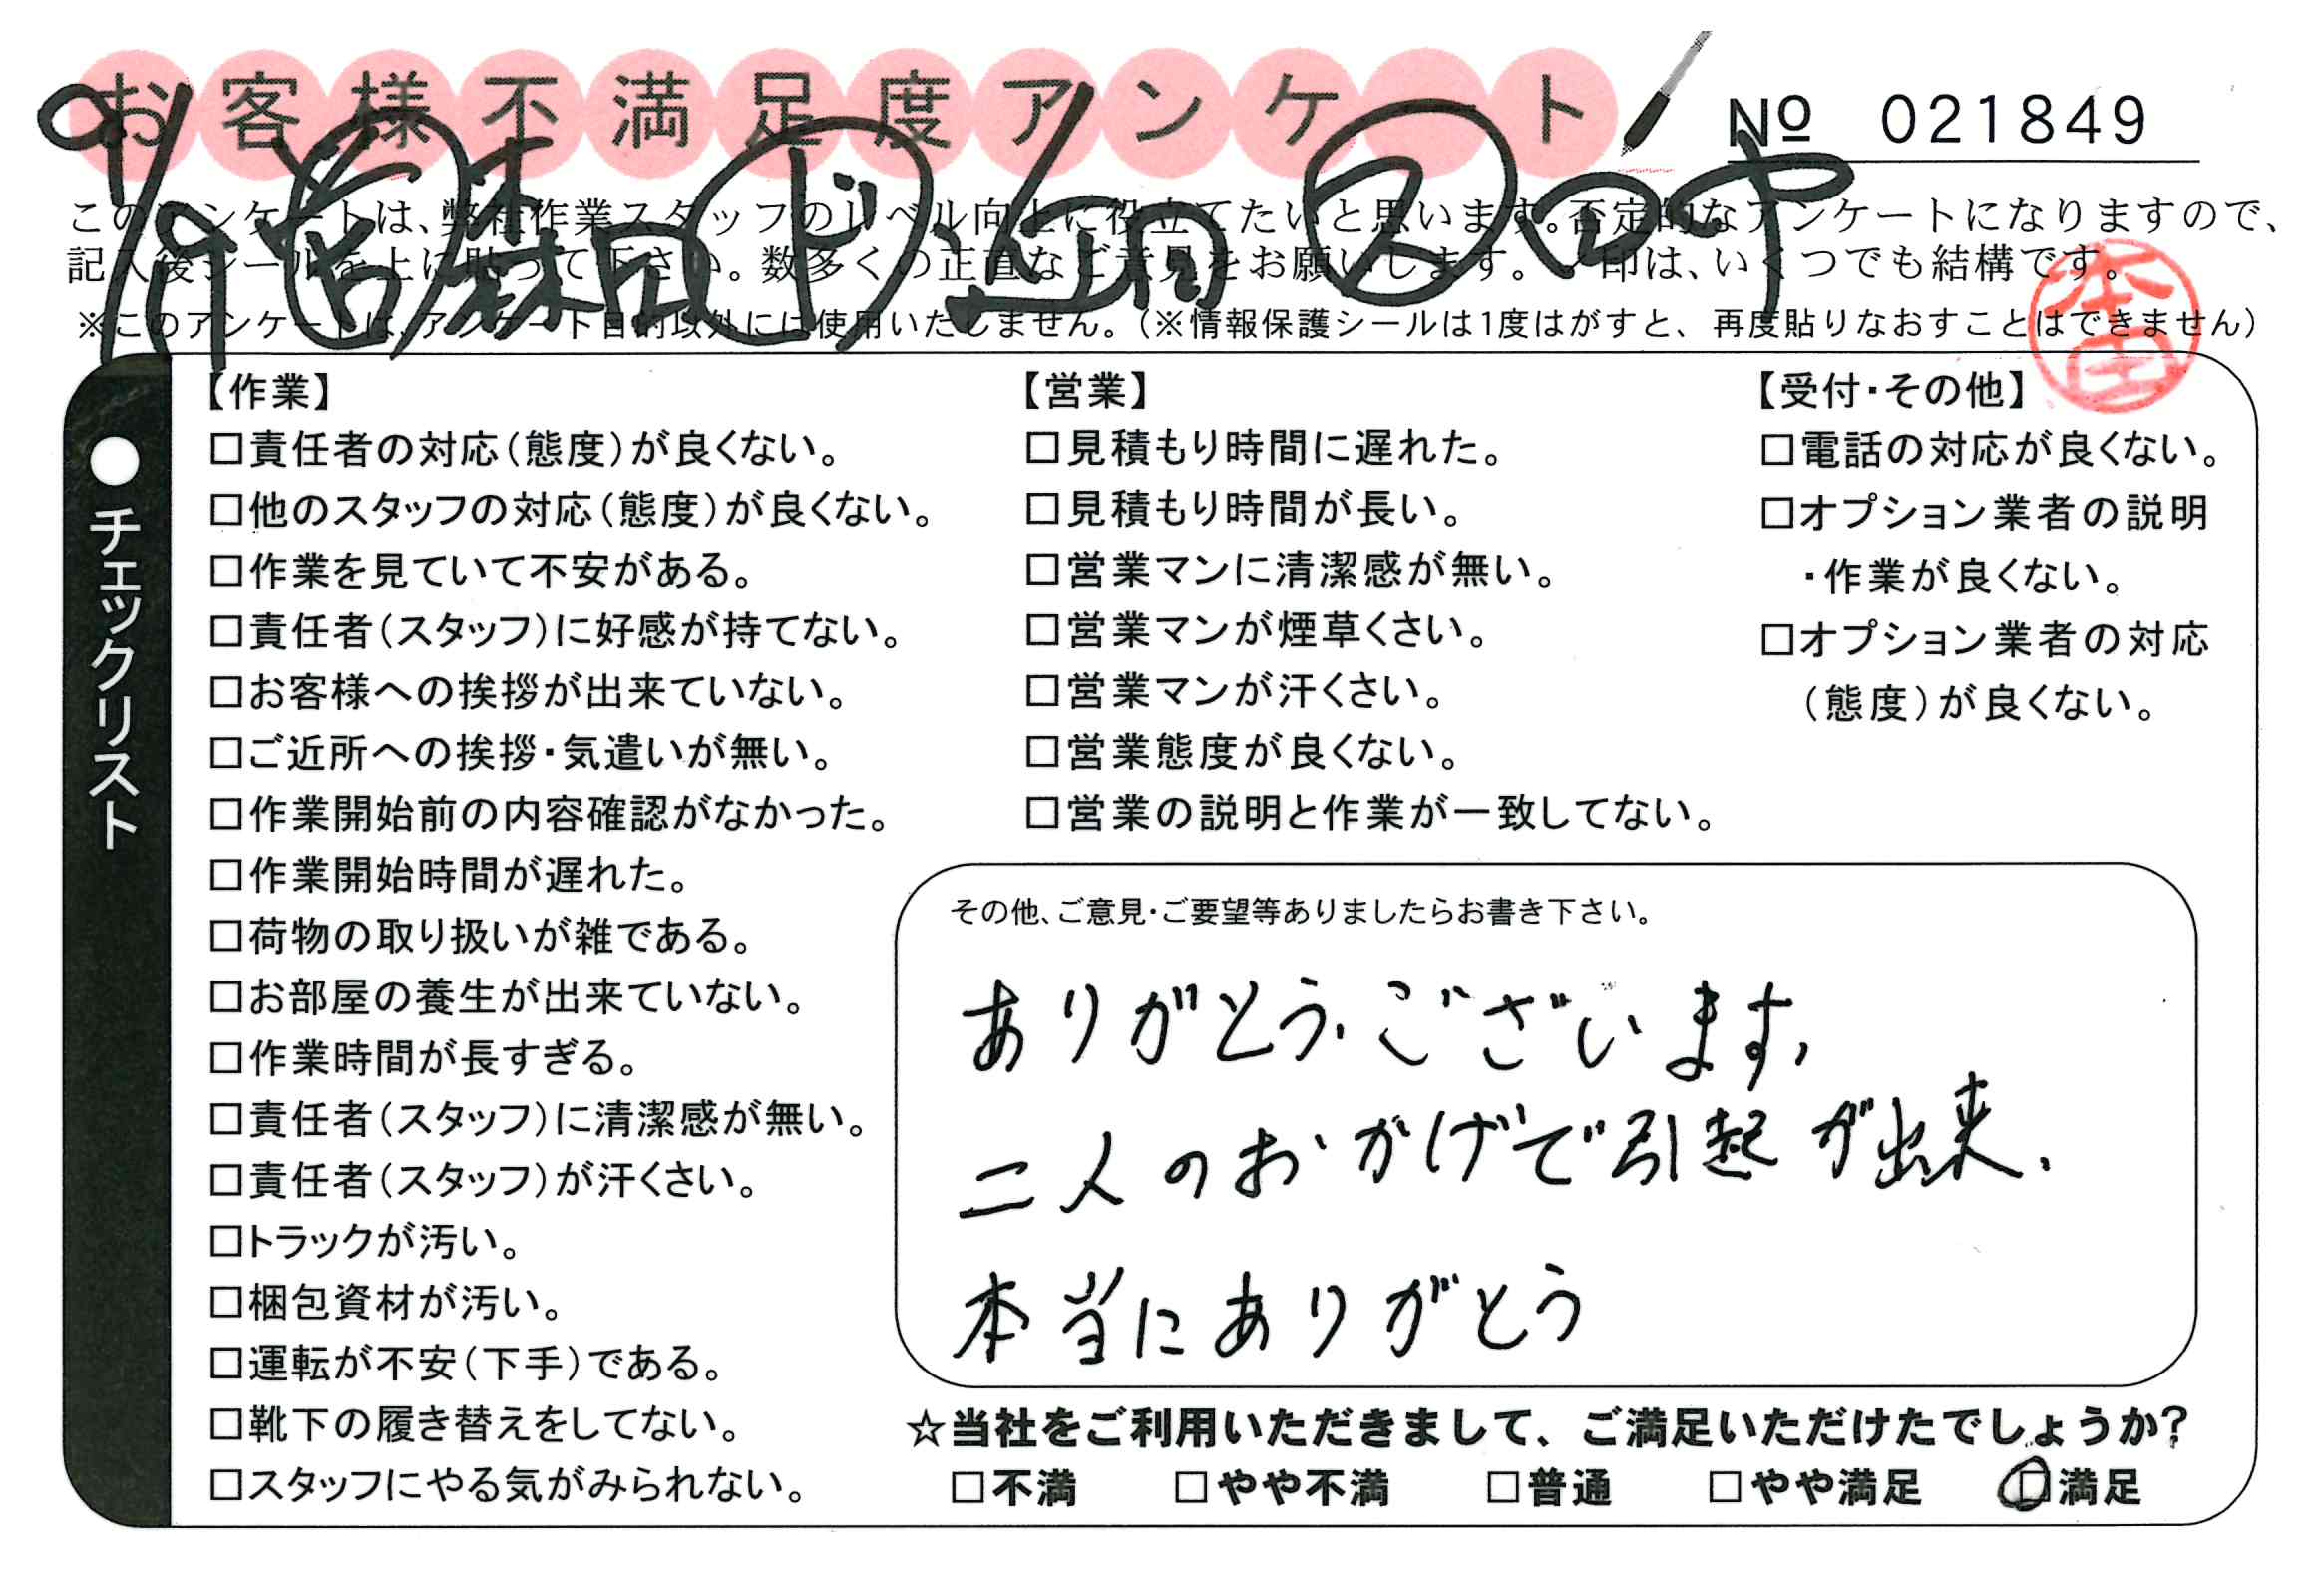 お客様不満足度アンケート
№ 021849
9/19 責 森口 ド 山田 2 田中
このアンケートは、弊社作業スタッフのレベル向上に役立てたいと思います。否定的なアンケートになりますので、
記入後シールを上に貼って下さい。数多くの正直なご意見をお願いします。✓印は、いくつでも結構です。
※このアンケートは、アンケート目的以外には使用いたしません。（※情報保護シールは1度はがすと、再度貼りなおすことはできません）
本田
●チェックリスト
【作業】
□責任者の対応（態度）が良くない。
□他のスタッフの対応（態度）が良くない。
□作業を見ていて不安がある。
□責任者（スタッフ）に好感が持てない。
□お客様への挨拶が出来ていない。
□ご近所への挨拶・気遣いが無い。
□作業開始前の内容確認がなかった。
□作業開始時間が遅れた。
□荷物の取り扱いが雑である。
□お部屋の養生が出来ていない。
□作業時間が長すぎる。
□責任者（スタッフ）に清潔感が無い。
□責任者（スタッフ）が汗くさい。
□トラックが汚い。
□梱包資材が汚い。
□運転が不安（下手）である。
□靴下の履き替えをしてない。
□スタッフにやる気がみられない。
【営業】
□見積もり時間に遅れた。
□見積もり時間が長い。
□営業マンに清潔感が無い。
□営業マンが煙草くさい。
□営業マンが汗くさい。
□営業態度が良くない。
□営業の説明と作業が一致してない。
【受付・その他】
□電話の対応が良くない。
□オプション業者の説明
・作業が良くない。
□オプション業者の対応
（態度）が良くない。
その他、ご意見・ご要望等ありましたらお書き下さい。
ありがとうございます、
二人のおかげで引起が出来、
本当にありがとう
☆当社をご利用いただきまして、ご満足いただけたでしょうか?
□不満 □やや不満 □普通 □やや満足 □満足